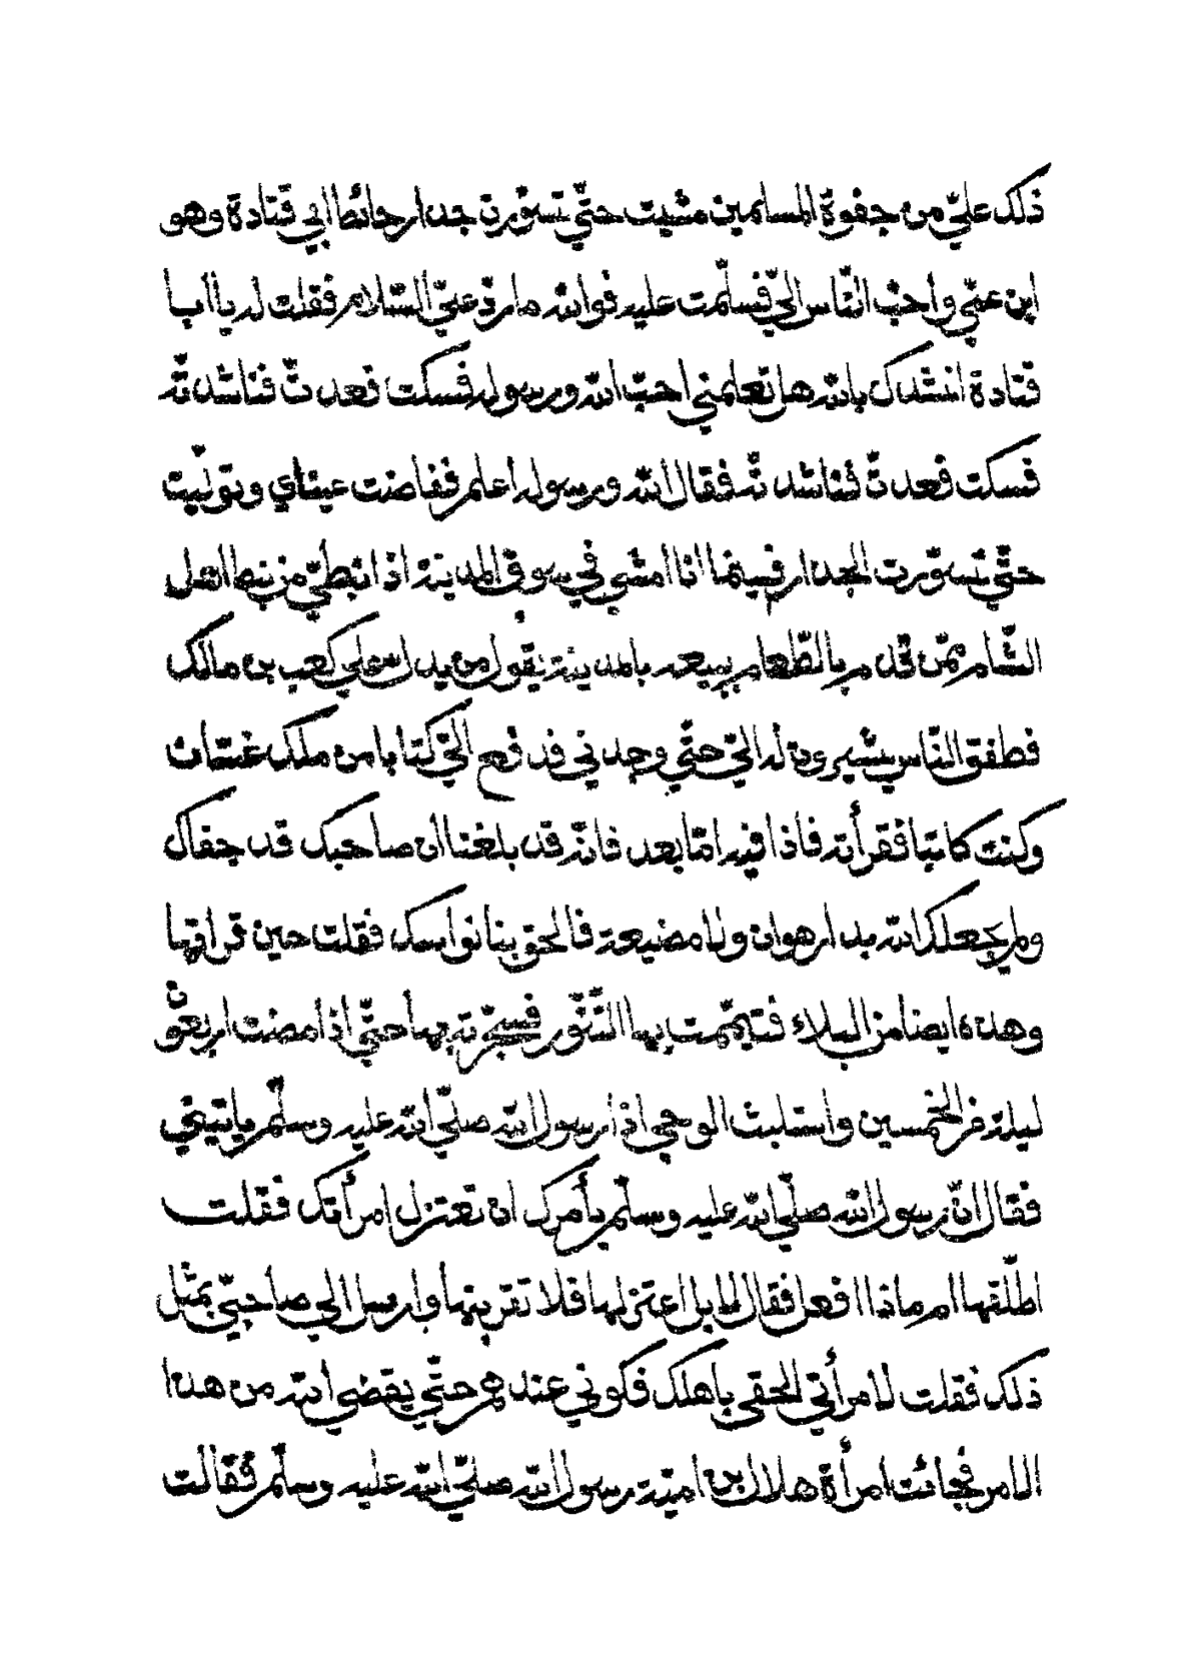 ذلك عليّ من جفوة المسلمين مشيت حتّي تسوّرت جدار حائط ابي قتادة وهو
ابن عمّي واحبّ النّاس اليّ فسلّمت عليه فوالله ما ردّ عليّ السّلام فقلت له يا ابا
قتادة انشدك بالله هل تعلمني احبّ الله ورسوله فسكت فعدتّ فناشدتّه
فسكت فعدتّ فناشدتّه فقال الله ورسوله اعلم ففاضت عيناي وتولّيت
حتّي تسوّرت الجدار فبينما انا امشي في سوق المدينة اذا نبطيّ من نبط اهل
الشّام ممّن قدم بالطّعام يبيعه بالمدينة يقول من يدل علي كعب بن مالك
فطفق النّاس يشيرون له اليّ حتّي وجدني فدفع اليّ كتابا من ملك غسّان
وكنت كاتبا فقرأته فاذا فيه امّا بعد فانّه قد بلغنا ان صاحبك قد جفاك
ولم يجعلك الله بدار هوان ولا مضيعة فالحق بنا نواسك فقلت حين قرأتها
وهذه ايضا من البلاء فتيمّمت بها التّنّور فسجّرته بها حتّي اذا مضت اربعون
ليلة من الخمسين واستلبث الوحي اذا رسول الله صلّي الله عليه وسلّم يأتيني
فقال انّ رسول الله صلّي الله عليه وسلّم يأمرك ان تعتزل امرأتك فقلت
اطلّقها ام ماذا افعل فقال لا بل اعتزلها فلا تقربنها وارسل الي صاحبيّ بمثل
ذلك فقلت لامرأتي الحقي باهلك فكوني عندهم حتّي يقضي الله من هذا
الامر فجائت امرأة هلال بن اميّة رسول الله صلّي الله عليه وسلّم فقالت